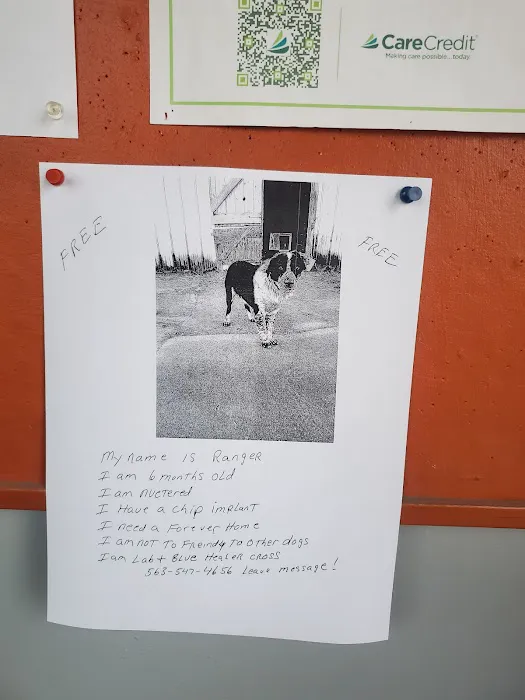 CareCredit
Making care possible...today
FREE
FREE
My name is Ranger
I am 6 months old
I am nuetered
I Have a chip implant
I need a Forever Home
I am not To Freindy To other dogs
I am Lab + Blue Healer cross
563-547-4656 Leave message!